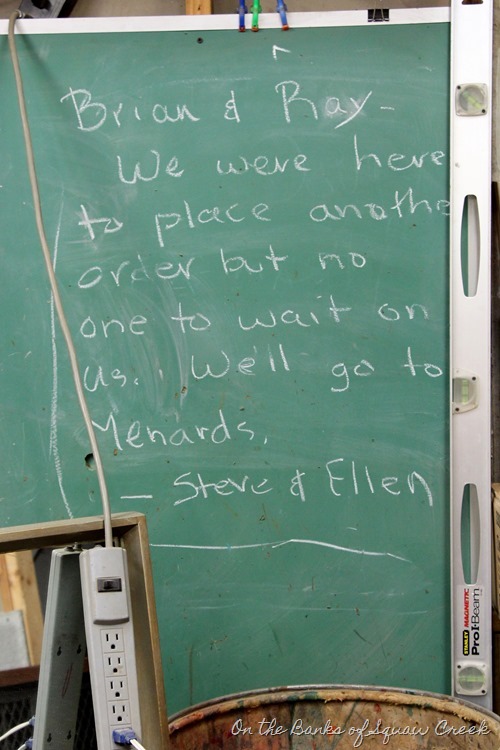 Brian & Ray -
We were here
to place anothe
order but no
one to wait on
us. We'll go to
Menards.
- Steve & Ellen
STANLEY MAGNETIC
Pro I-Beam
On the Banks of Squaw Creek